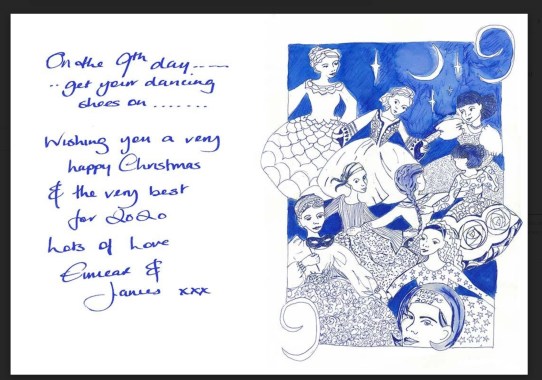 On the 9th day......
..get your dancing
shoes on .......
Wishing you a very
happy Christmas
& the very best
for 2020
Lots of Love
&
James xxx
9
9